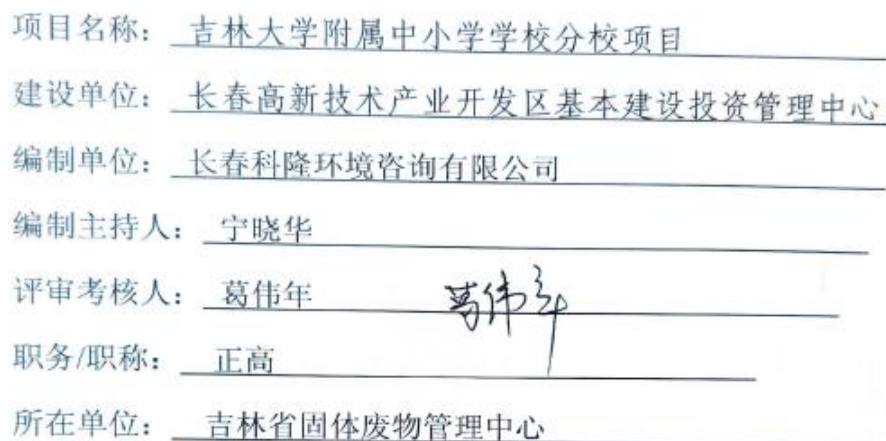 项目名称： 吉林大学附属中小学学校分校项目
建设单位： 长春高新技术产业开发区基本建设投资管理中心
编制单位： 长春科隆环境咨询有限公司
编制主持人： 宁晓华
评审考核人： 葛伟年 葛伟年
职务/职称： 正高
所在单位： 吉林省固体废物管理中心